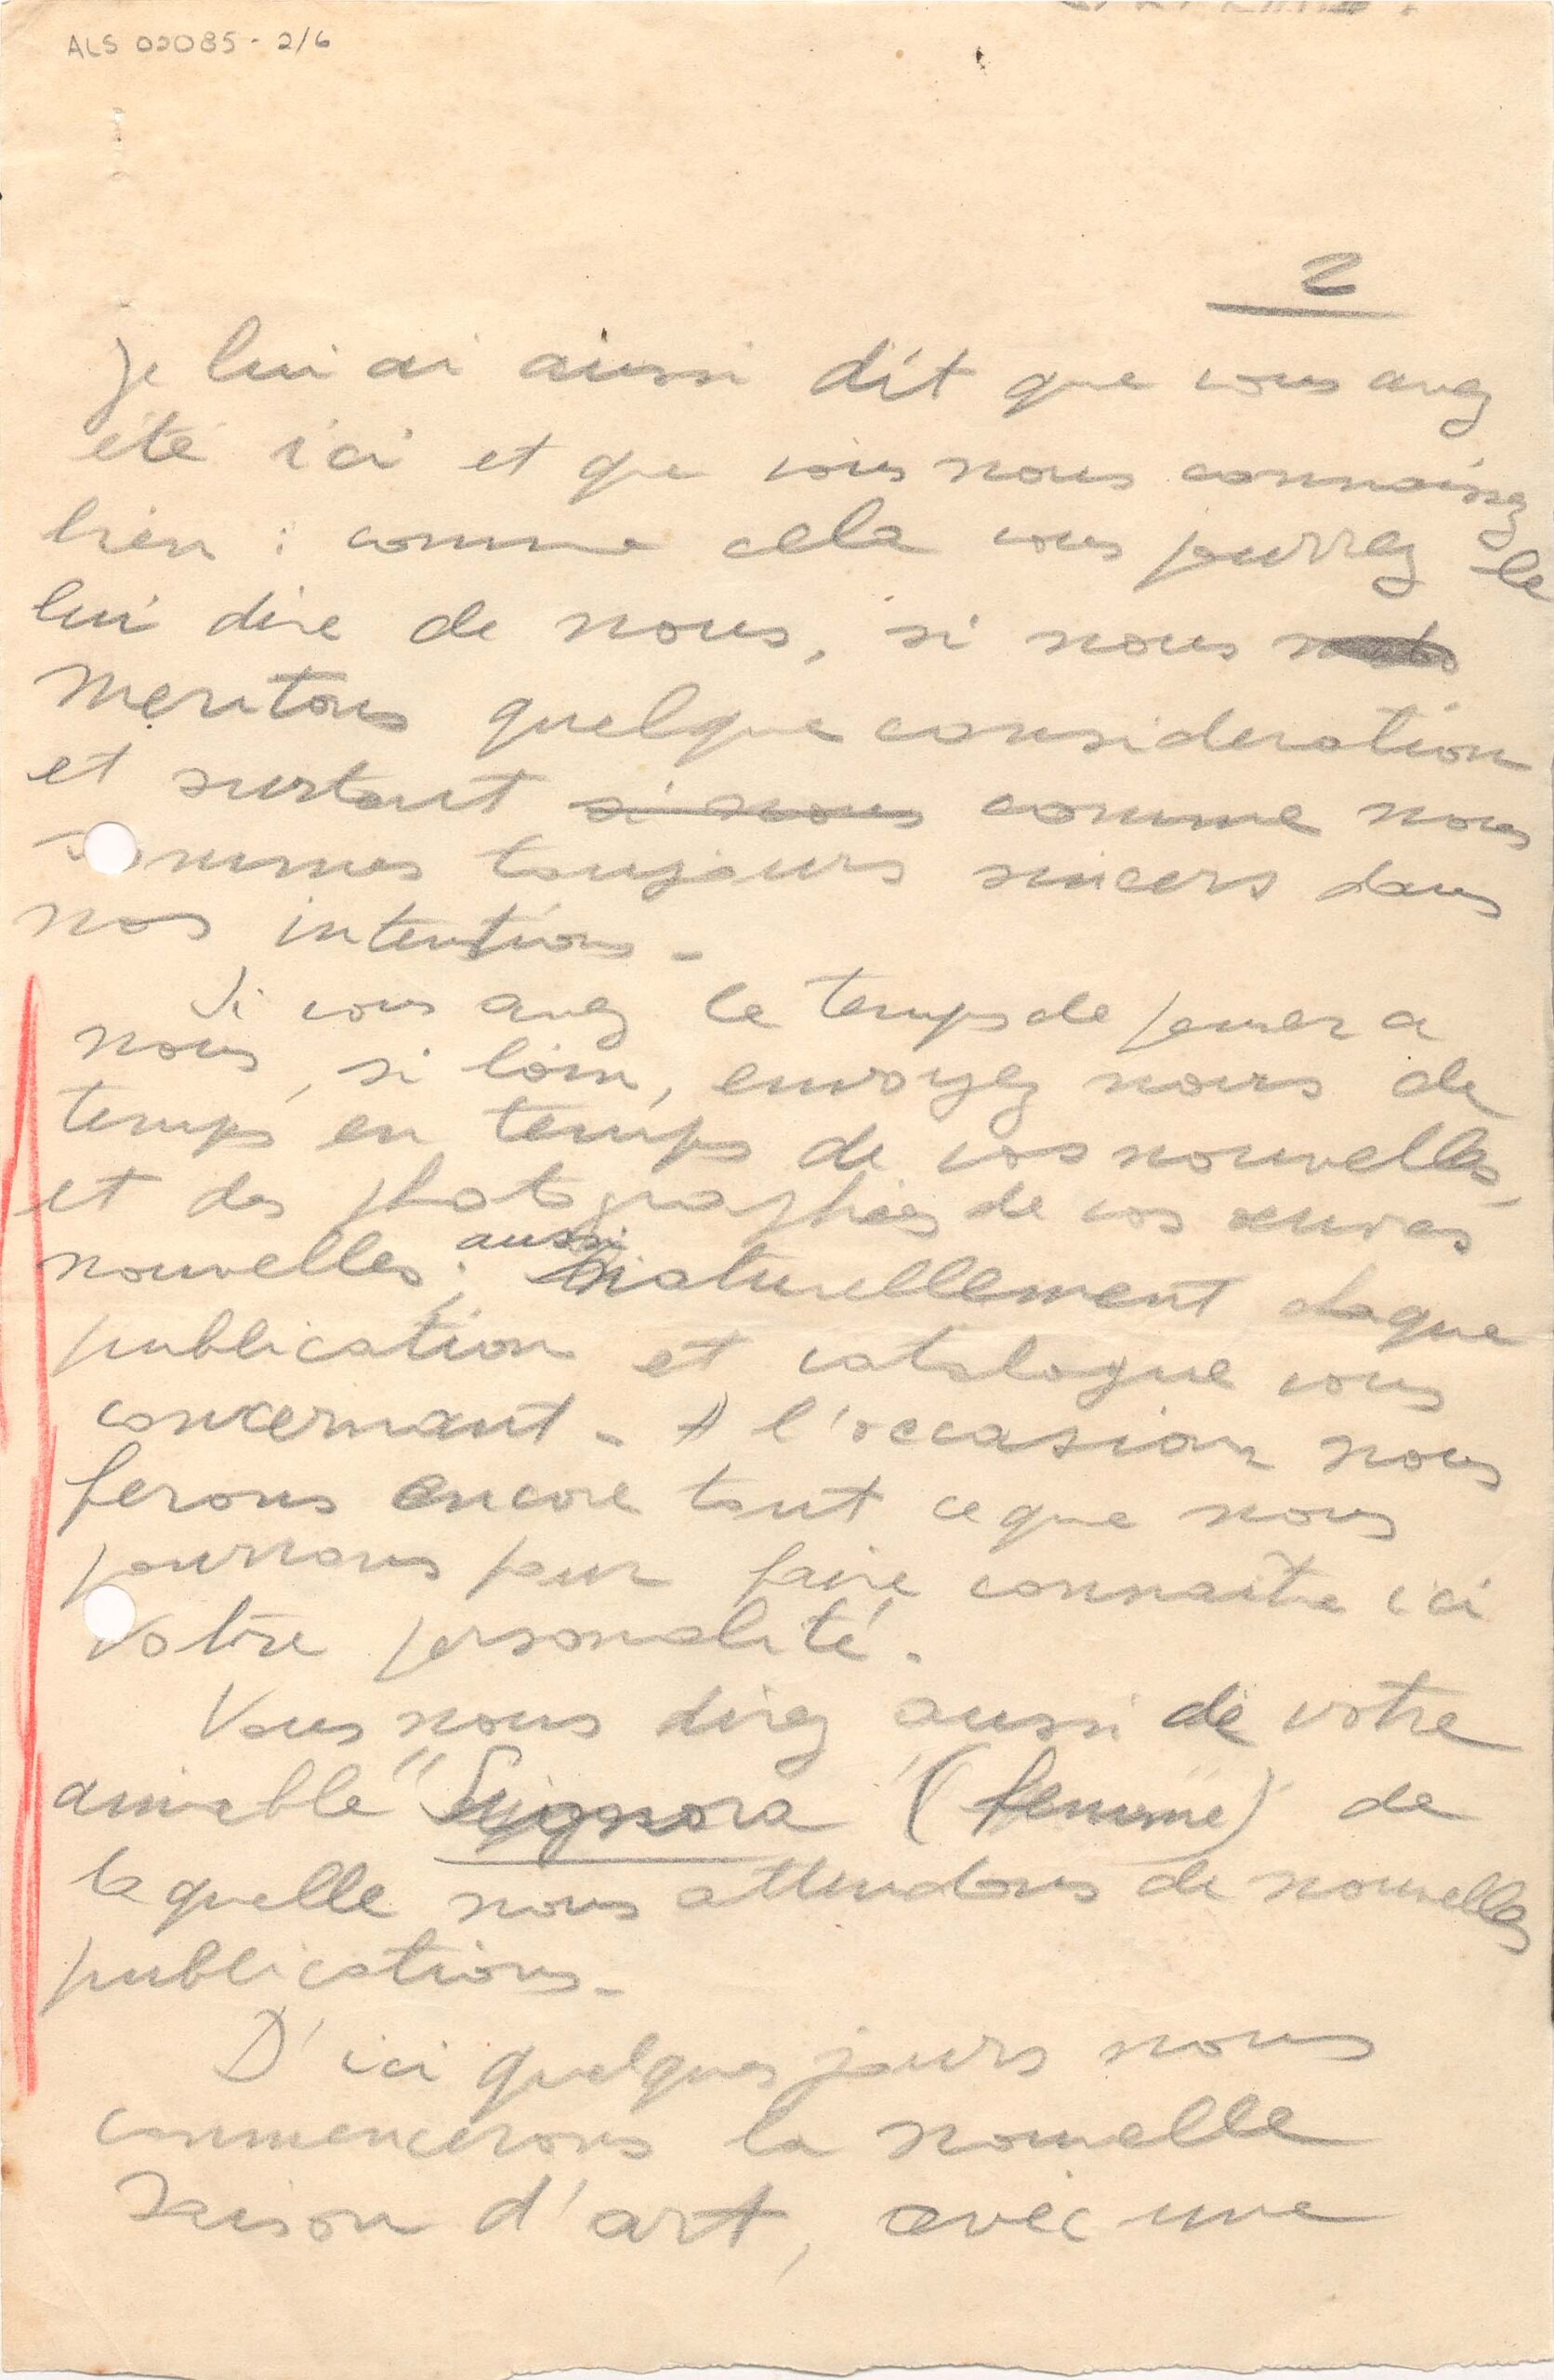 ALS 02085 - 2/6
2
Je lui ai aussi dit que vous avez
été ici et que vous nous connaissez
bien : comme cela vous pourrez le
lui dire de nous, si nous
meritons quelque consideration
et surtout si nous comme nous
sommes toujours sincers dans
nos intentions -
Si vous avez le temps de penser a
nous, si loin, envoyez nous de
temps en temps de vos nouvelles,
et des photographies de vos œuvres
nouvelles; aussi naturellement chaque
publication et catalogue vous
concernant - A l'occasion nous
ferons encore tout ce que nous
pourrons pour faire connaitre ici
votre personalité.
Vous nous direz aussi de votre
aimable "Signora" (femme) de
laquelle nous attendons de nouvelles
publications -
D'ici quelques jours nous
commencerons la nouvelle
saison d'art, avec une